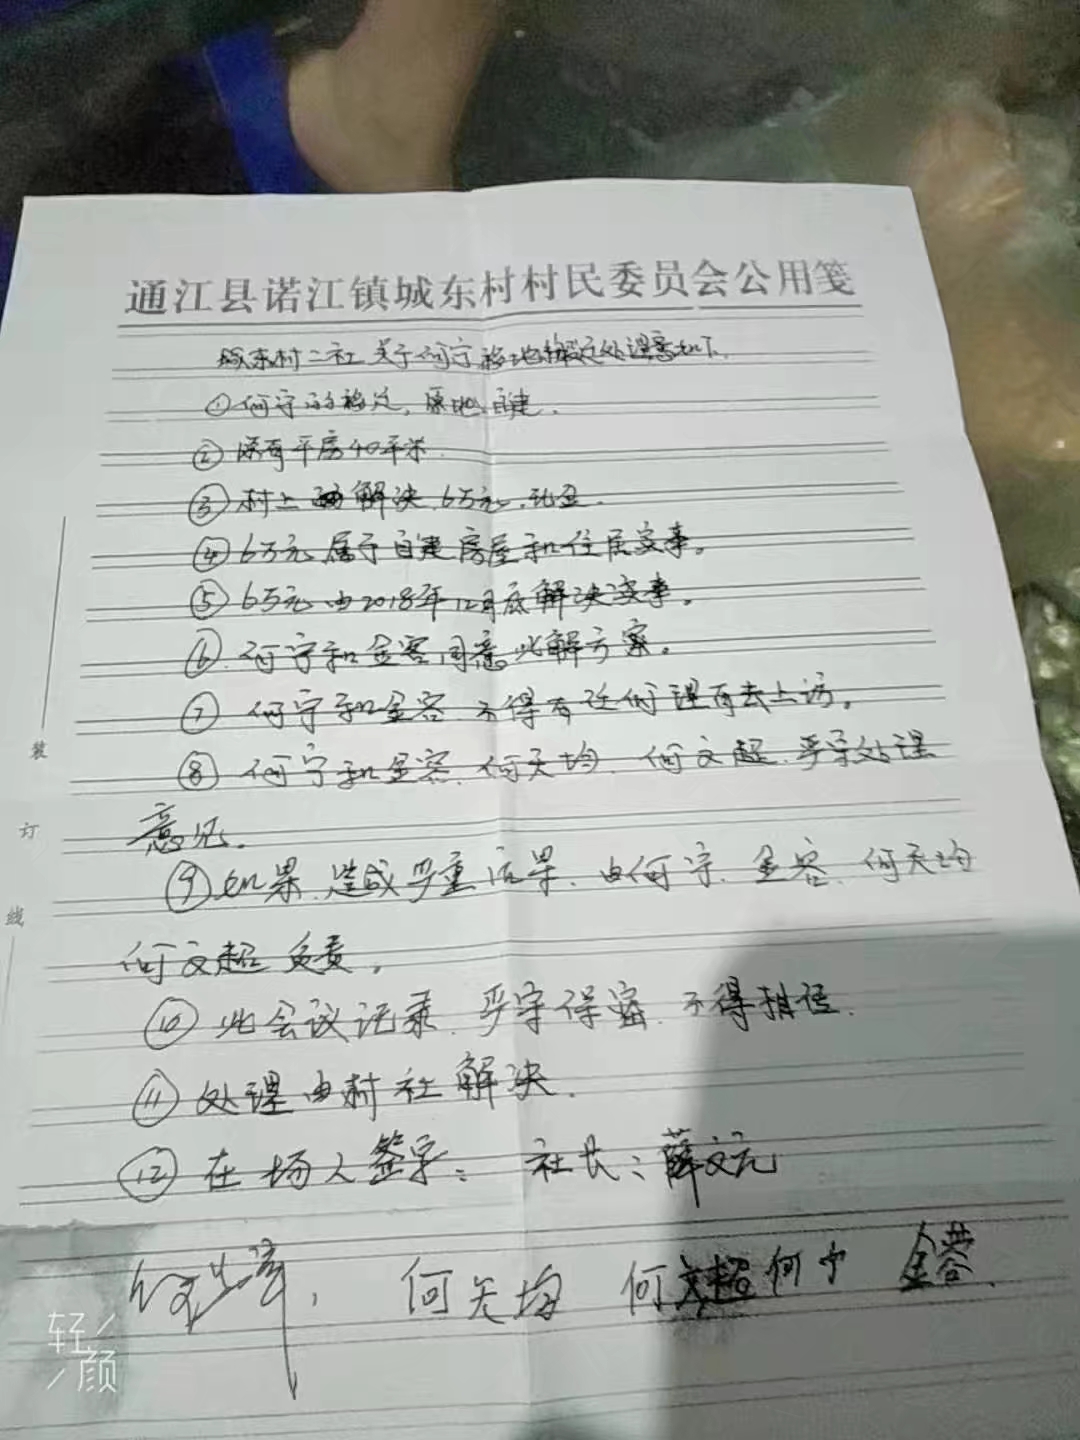 通江县诺江镇城东村村民委员会公用笺
城东村二社关于何宁移地搬迁处理意如下.
①何宁的移迁,原地自建.
②原有平房40平米.
③村上解决6万元
④6万元属于自建房屋和住居安事。
⑤6万元由2018年12月底解决该事。
⑥何宁和金容同意此解方案。
⑦何宁和金容不得有任何理有去上访。
⑧何宁和金容.何天均.何文超.严守处理
意见.
⑨如果造成严重后果.由何宁.金容.何天均
何文超负责。
⑩此会议记录.严守保密.不得相信.
⑪处理由村社解决.
⑫在场人签字: 社长:薛文元
何 何天均 何文超 何宁 金蓉.
装
订
线
轻
颜